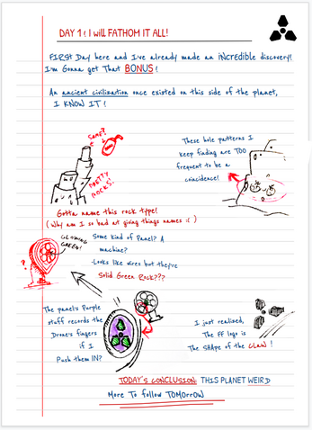 DAY 1! I will FATHOM IT ALL!
FIRST Day here and I've already made an INCREDIBLE discovery!
I'm Gonna get That BONUS!
An ancient civilization once existed on this side of the planet,
I KNOW IT!
SAME?
PARTY
ROCKS?
These hole patterns I
keep finding are TOO
frequent to be a
coincidence!
Gotta name this rock type!
(Why am I so bad at giving things names :( )
GLOWING
GREEN!
?
Some kind of Panel? A
machine?
Looks like wires but they're
Solid Green Rock???
The panel's Purple
stuff records the
Drone's fingers
if I
Push them IN?
I just realised,
The FF logo is
The SHApe of the CLAW!
TODAY'S CONCLUSION: THIS PLANET WEIRD
More To follow TOMORROW